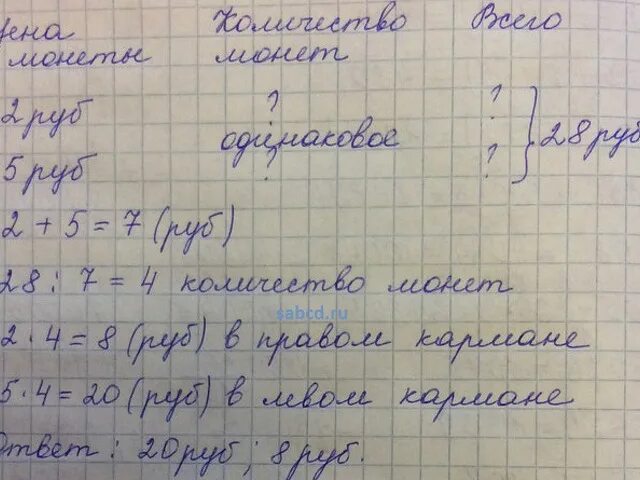 цена Количество Всего
монеты монет
2 руб ? ?
одинаковое } 28 руб
5 руб ? ?
2 + 5 = 7 (руб)
28 : 7 = 4 количество монет
sabcd.ru
2 · 4 = 8 (руб) в правом кармане
5 · 4 = 20 (руб) в левом кармане
Ответ : 20 руб ; 8 руб.